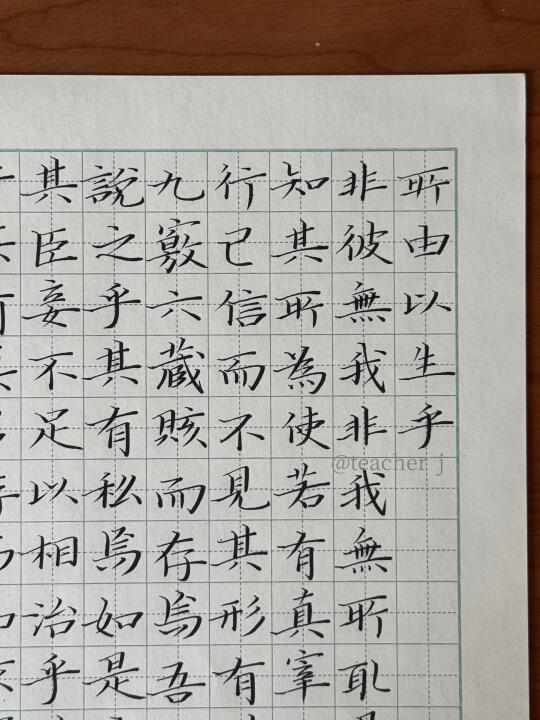 所由以生乎
非彼無我非我無所取
知其所為使若有真宰
行己信而不見其形有
九竅六藏賅而存焉吾
說之乎其有私焉如是
其臣妾不足以相治乎
@teacher j